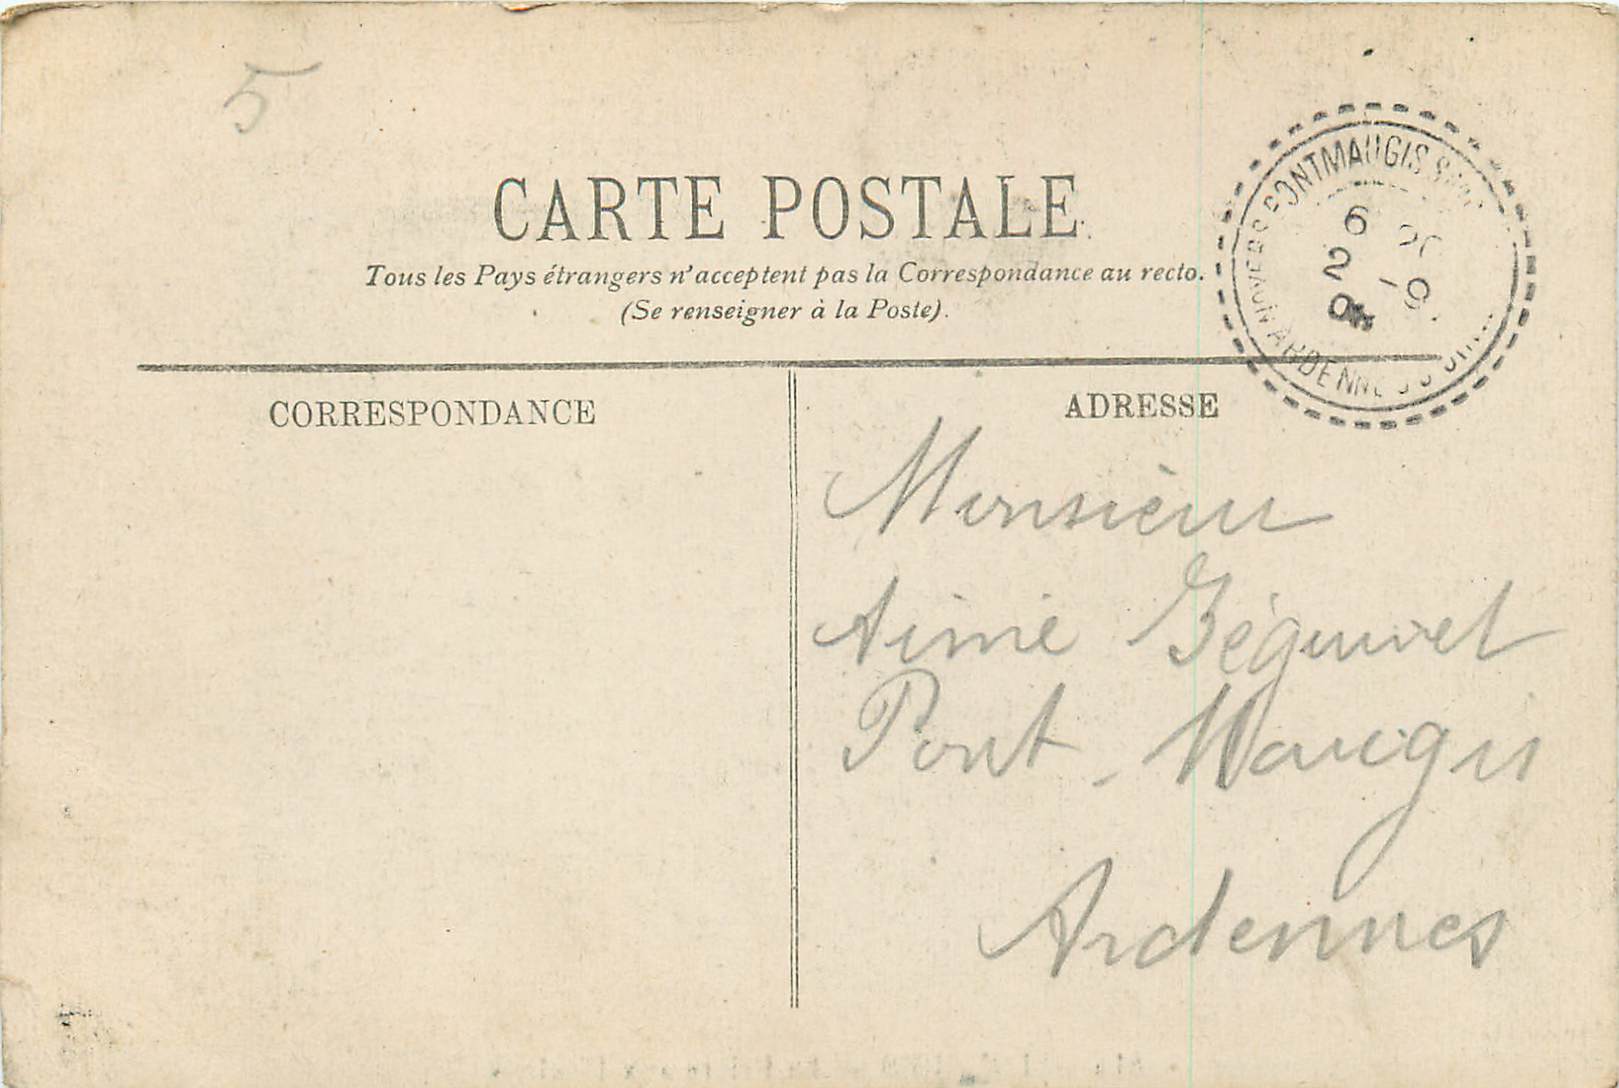 5
CARTE POSTALE
Tous les Pays étrangers n'acceptent pas la Correspondance au recto.
(Se renseigner à la Poste).
CORRESPONDANCE
ADRESSE
PONTMAUGIS
6
2
ARDENNES
Monsieur
Aimé
Pont-Maugis
Ardennes